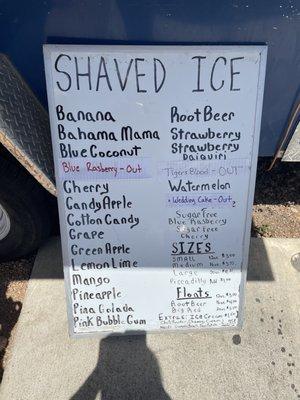 SHAVED ICE
Banana
Bahama Mama
Blue Coconut
Blue Rasberry - Out
Cherry
Candy Apple
Cotton Candy
Grape
Green Apple
Lemon Lime
Mango
Pineapple
Pina Colada
Pink Bubble Gum
Root Beer
Strawberry
Strawberry
Daiquiri
Tigers Blood - OUT
Watermelon
Wedding Cake - Out
Sugar Free
Blue Rasberry
Sugar Free
Cherry
SIZES
Small
Medium
Large
Piccadilly
Floats
Root Beer
Big Red
Extras Ice Cream